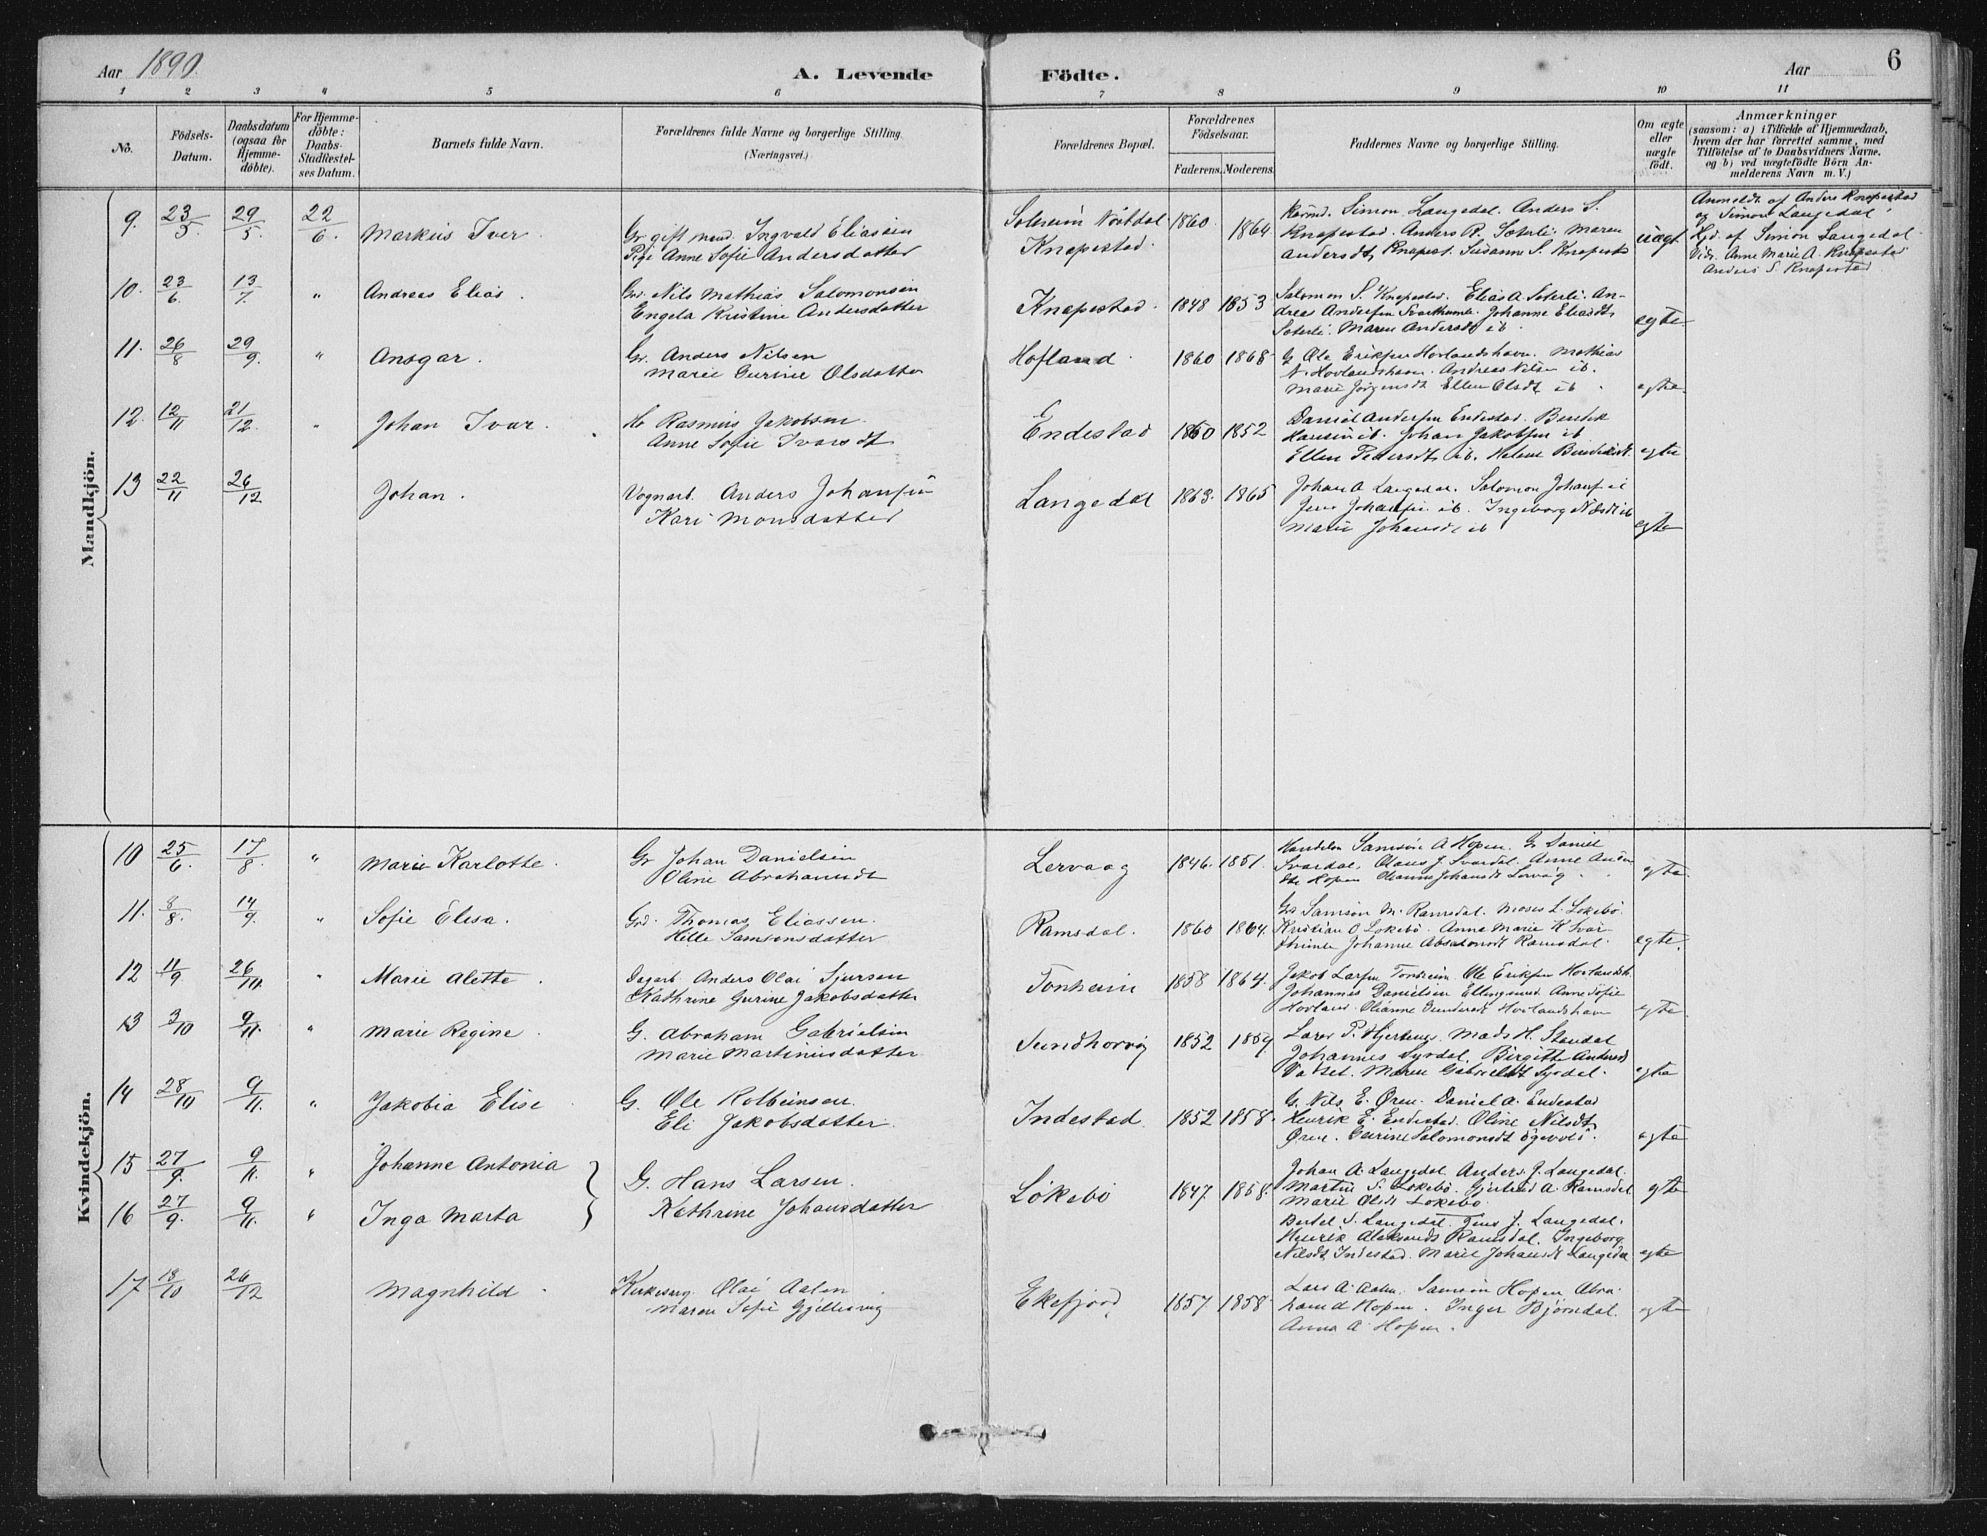 Aar 1890.
A. Levende Födte.
Aar
6
1 2 3 4 5 6 7 8 9 10 11
No.
Födsels-Datum.
Daabsdatum (ogsaa for Hjemme-döbte).
For Hjemme-döbte: Daabs-Stadfæstel-ses Datum.
Barnets fulde Navn.
Forældrenes fulde Navne og borgerlige Stilling.
(Næringsvei.)
Forældrenes Bopæl.
Forældrenes Födselsaar.
Faderens. Moderens.
Faddernes Navne og borgerlige Stilling.
Om ægte eller uægte födt.
Anmærkninger
(saasom: a) i Tilfælde af Hjemmedaab,
hvem der har forrettet samme, med
Tilföielse af to Daabsvidners Navne,
og b) ved uægtefödte Börn An-
melderens Navn m. V.)
Mandkjön.
9. 23/5. 29/5. 22/6. Markus Iver.
Gr gift mand. Ingvald Eliassen
Pige Anne Sofie Andersdatter
Solheim Nordal
Knapestad.
1860. 1864.
Simon Langedal. Anders S.
Knapestad. Anders R. Sæterli. Maren
Andersdt, Knapest. Susanne S. Knapestad
uægt.
Anmeldt af Anders Knapestad
og Simon Langedal.
Hjd. af Simon Langedal.
Vidr. Anne Marie A. Knapestad
Anders S. Knapestad.
10. 23/6. 13/7. " Andreas Elias.
Gr. Nils Mathias Salomonsen
Engela Kristine Andersdatter
Knapestad. 1848 1853
Salomon S. Knapestad. Elias A. Sæterli. An-
dreas Andersen Svarthumle. Johanne Eliasdt,
Sæterli. Maren Andersdt ib.
egte.
11. 26/8 29/9. " Ansgar.
Gr. Anders Nilsen
Marie Gurine Olsdatter
Hofland. 1860 1868.
G Ole Eriksen Hovlandshavn. Mathias
N. Hovlandshavn. Andreas Nilsen ib.
Marie Jørgensdt Ellen Olsdt ib.
egte.
12. 12/11 21/12. " Johan Ivar.
H Rasmus Jakobsen
Anne Sofie Ivarsdt
Endestad 1850 1852
Daniel Andersen Endestad. Bendik
Hansen ib. Johan Jakobsen ib.
Ellen Pedersdt ib. Helene Bendiksdt.
egte
13 22/11 26/12 Johan.
Vognarb. Anders Johansen
Kari Monsdatter
Langedal 1863. 1865
Johan A Langedal. Salomon Johansen ib
Jens Johansen ib. Ingeborg Nilsdt ib
Marie Johansdt ib
egte
Kvindekjön.
10 25/6. 17/8 " Marie Karlotte.
Gr Johan Danielsen
Oline Abrahamsdt
Lervaag 1846. 1851.
Handelsm Samson A Hopen. G Daniel
Svardal. Claus J. Svardal. Anne Anders
dtr Hopen Johansdt Lervåg.
egte.
11. 8/8. 14/9. " Sofie Elisa.
Grd. Thomas Eliassen.
Hille Samsonsdatter
Ramsdal. 1860 1864.
Gr Samson M. Ramsdal. Moses L. Løkebø.
Kristian O Løkebø. Anna Marie K Svar
thumle Johanne Absalonsdt Ramsdal.
egte.
12 11/9. 26/10. " Marie Alette.
Dagarb Anders Olai Sjursen
Kathrine Gurine Jakobsdatter
Tonheim 1858 1864.
Jakob Larsen Tonheim Ole Eriksen Hovlandsh.
Johannes Danielsen Anne Sofie
Hovland. Gundersdt Hovlandshavn
egte.
13 3/10 9/11. " Marie Regine.
G. Abraham Gabrielsen
Marie Martinusdatter
1852 1859
Lars P. Hjertenes. Mads H. Standal
Johannes Syrdal. Birgitte Andersdt
Vasset. Maren Gabrielsdt Syrdal.
egte
14 28/10 9/11. " Jakobia Elise
G. Ole Kolbeinsen.
Eli Jakobsdatter.
Indestad. 1852 1858.
G. Nils E. Øren. Daniel A. Endestad
Henrik E. Endestad. Oline Nilsdt
Øren. Gurine Salomonsdt
egte
15 27/9. 9/11. " Johanne Antonia
16 27/9. 9/11. " Inga Marta
G. Hans Larsen.
Kathrine Johansdatter
Løkebø 1847. 1858.
Johan A. Langedal. Anders J. Langedal.
Martin S. Løkebø. Gjertrud A. Ramsdal
Marie Olsdt Løkebø
egte
Bertel S. Langedal. Jens J. Langedal.
Henrik Aleksandt Ramsdal. Ingeborg
Nilsdt Indestad. Marie Johansdt Langedal
egte
17 18/10 26/12 Magnhild.
Kirkesng. Olai Aalen
Maren Sofie Gjellesvig
Ekefjord, 1857. 1858.
Lars A. Aalen. Samson Hopen Abra-
ham d Hopen. Inger Bjørndal.
Anna A Hopen.
egte